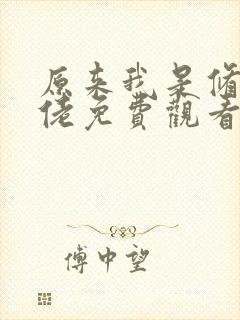 原来我是修
佬免費觀看
傅中望